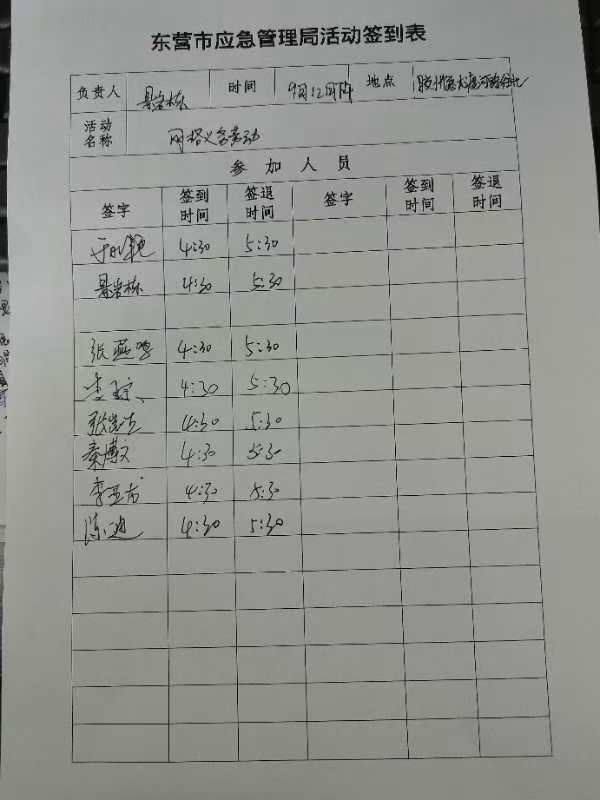 东营市应急管理局活动签到表
负责人 景岩栋 时间 9月12日 地点
活动名称 网格义务劳动
参加人员
签字 签到时间 签退时间 签字 签到时间 签退时间
4:30 5:30
景岩栋 4:30 5:30
张燕 4:30 5:30
李 4:30 5:30
张 4:30 5:30
秦博文 4:30 5:30
李亚龙 4:30 5:30
陈迪 4:30 5:30